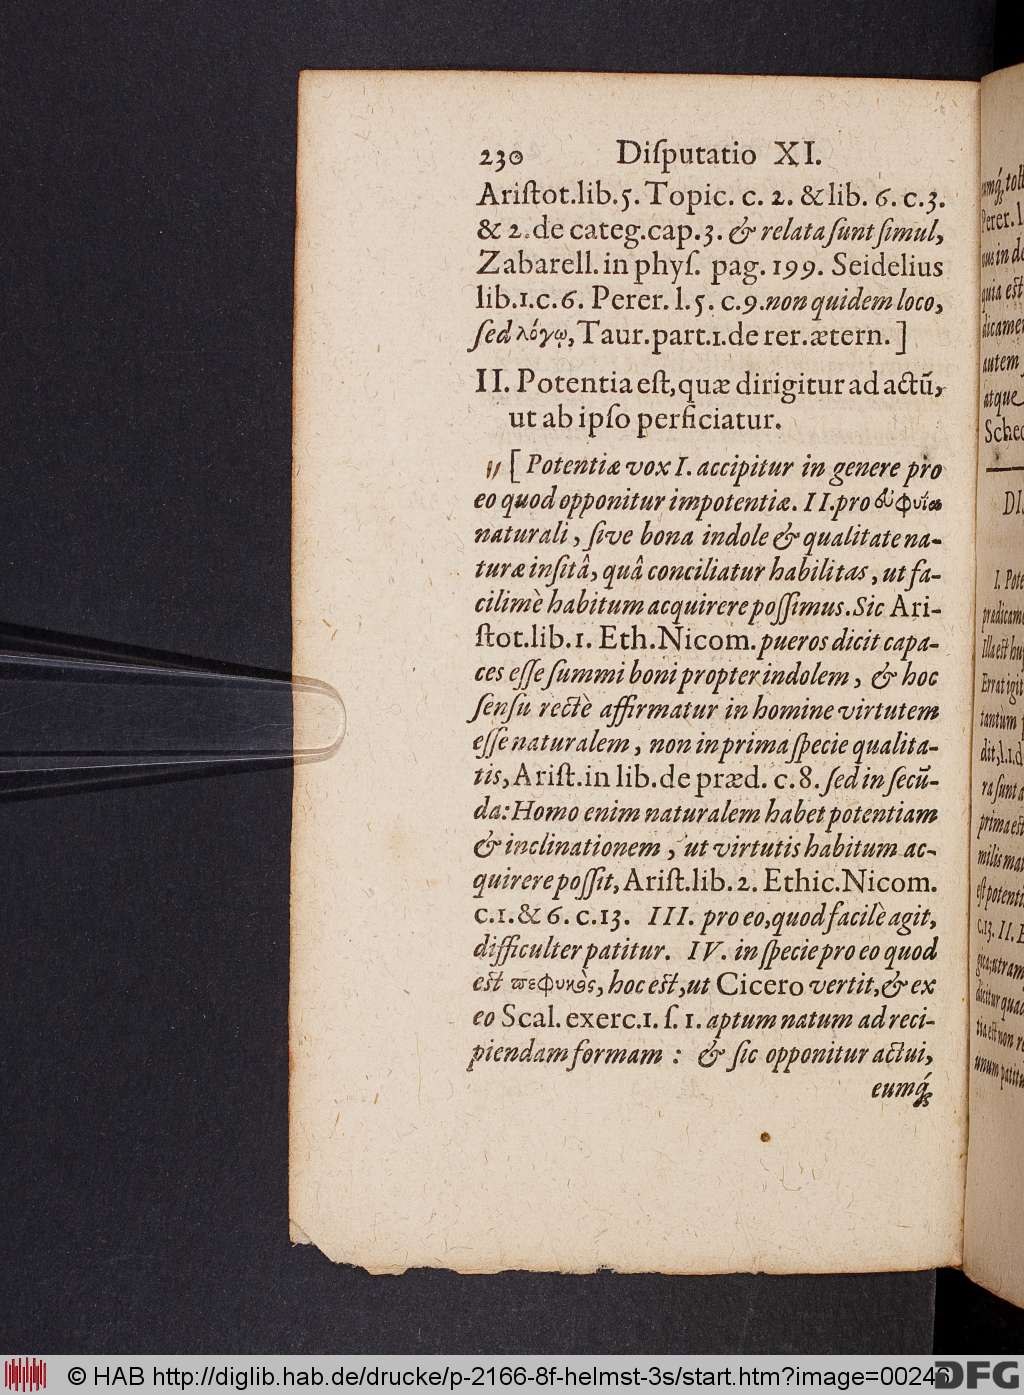 230 Diſputatio XI.
Ariſtot.lib.5.Topic. c. 2. & lib. 6. c.3.
& 2.de categ.cap.3. & relata ſunt ſimul,
Zabarell. in phyſ. pag. 199. Seidelius
lib.1.c.6. Perer. l.5. c.9.non quidem loco,
ſed λόγῳ, Taur.part.1.de rer.ætern.]
II. Potentia eſt, quæ dirigitur ad actū,
ut ab ipſo perficiatur.
[ Potentiæ vox I. accipitur in genere pro
eo quod opponitur impotentiæ. II.pro
naturali, ſive bona indole & qualitate na-
turæ inſitâ, quâ conciliatur habilitas, ut fa-
cilimè habitum acquirere poſſimus. Sic Ari-
ſtot.lib.1. Eth.Nicom. pueros dicit capa-
ces eſſe ſummi boni propter indolem, & hoc
ſenſu rectè affirmatur in homine virtutem
eſſe naturalem, non in prima ſpecie qualita-
tis, Ariſt.in lib.de præd. c.8. ſed in ſecū-
da: Homo enim naturalem habet potentiam
& inclinationem, ut virtutis habitum ac-
quirere poſſit, Ariſt.lib. 2. Ethic.Nicom.
c.1.& 6. c.13. III. pro eo, quod facilè agit,
difficulter patitur. IV. in ſpecie pro eo quod
eſt πεφυκὸς, hoc eſt, ut Cicero vertit, & ex
eo Scal. exerc.1. ſ. 1. aptum natum ad reci-
piendam formam : & ſic opponitur actui,
eumq́;
autem
atque
I. Pote
© HAB http://diglib.hab.de/drucke/p-2166-8f-helmst-3s/start.htm?image=00246
DFG